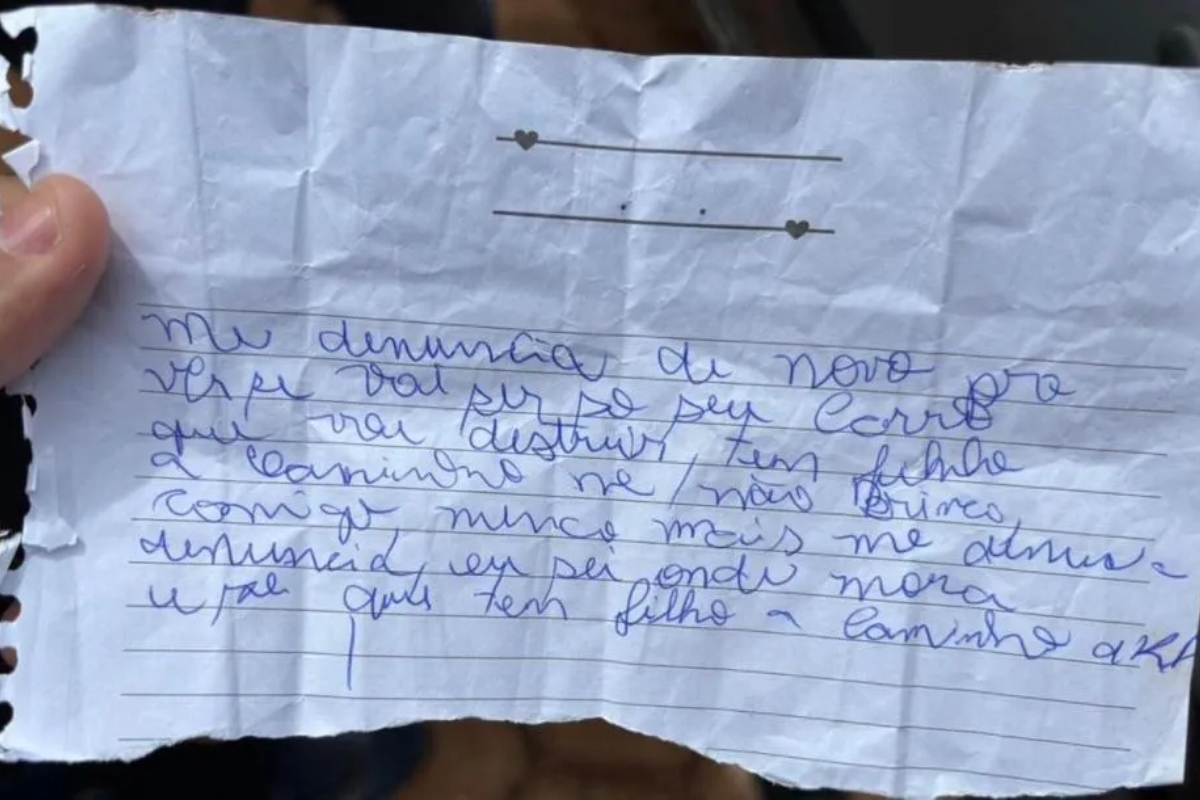 me denuncia de novo pra
ver se vai ser so seu carro
que vai distruir, tem filho
a caminho ne, não Brinca
comigo, nunca mais me denus
denuncia, eu sei onde mora
e sei que tem filho a caminho